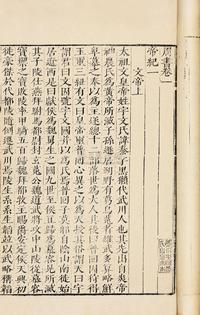 周書卷一
帝紀一
文帝上
太祖文皇帝姓宇文氏諱泰字黑獺代武川人也其先出自炎帝
神農氏為黃帝所滅子孫遯居朔野有葛烏菟者雄武多算略鮮
卑慕之奉以為主遂總十二部落世為大人其後曰普回因狩得
玉璽三紐有文曰皇帝璽普回心異之以為天授其俗謂天曰宇
謂君曰文因號宇文國并以為氏焉普回子莫那自陰山南徙始
居遼西是曰獻侯為魏舅生之國九世至侯豆歸為慕容晃所滅
其子陵仕燕拜駙馬都尉封玄菟公魏道武將攻中山陵從慕容
寶禦之寶敗陵率甲騎五百歸魏拜都牧主賜爵安定侯天興初
徙豪傑於代都陵隨例遷武川焉陵生系系生韜並以武略稱韜